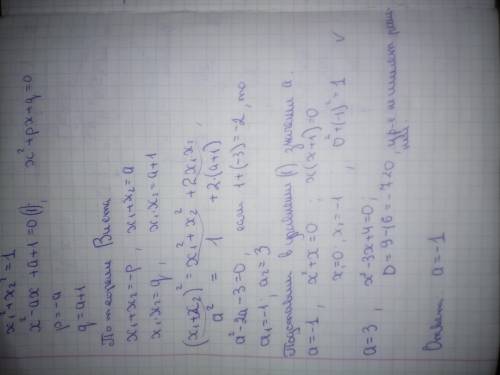 x₁² + x₂² = 1
x² - ax + a + 1 = 0 (1), x² + px + q = 0
p = -a
q = a + 1
По теореме Виета
x₁ + x₂ = -p, x₁ + x₂ = a
x₁ · x₂ = q, x₁ · x₂ = a + 1
(x₁ + x₂)² = x₁² + x₂² + 2x₁x₂,
a² = 1 + 2·(a+1)
a² - 2a - 3 = 0, если 1 + (-3) = -2, то
a₁ = -1, a₂ = 3
Подставим в уравнение (1) значения a.
a = -1, x² + x = 0; x(x+1) = 0
x₁ = 0, x₂ = -1, 0² + (-1)² = 1 ✓
a = 3, x² - 3x + 4 = 0;
D = 9 - 16 = -7 < 0, ур-е не имеет реше-
ний.
Ответ a = -1